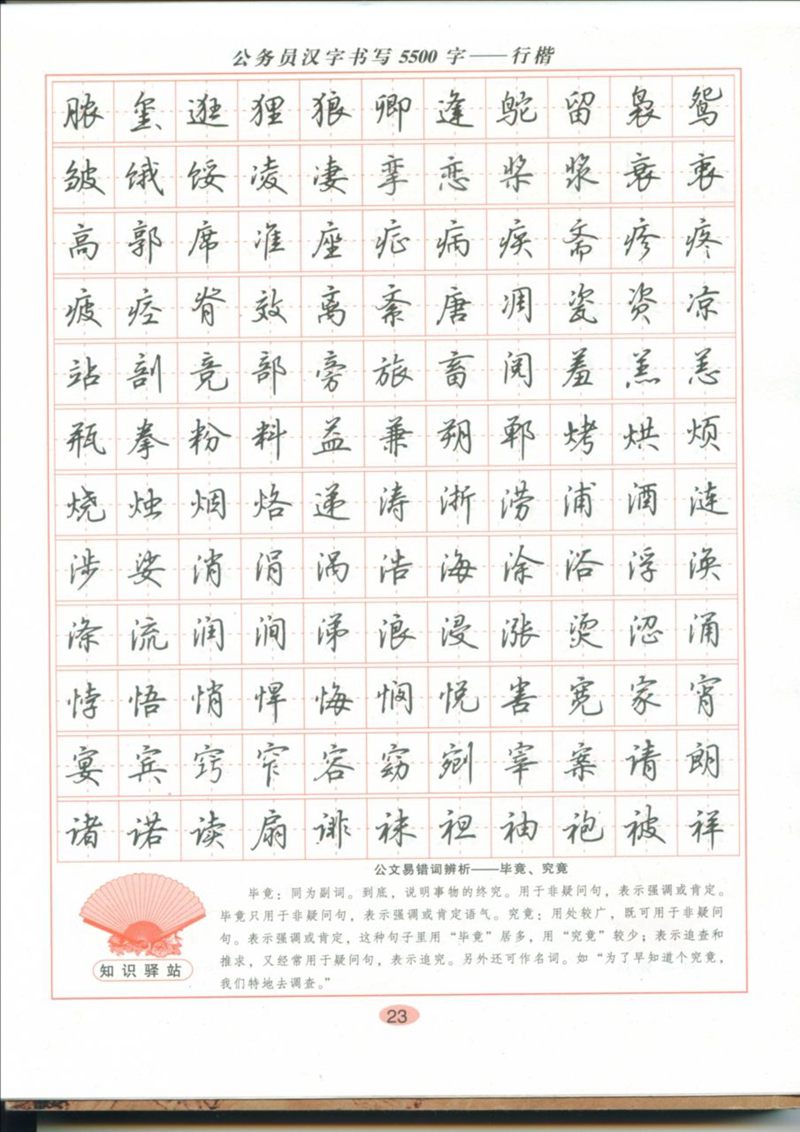 公务员汉字书写5500字——行楷
脓玺逛狸狼卿逢鸵留袅鸳
皱饿馁凌凄挛恋桨浆衰衷
高郭席准座症病疾斋疹疼
疲痉脊效离紊唐凋瓷资凉
站剖竞部旁旅畜阅羞羔恙
瓶拳粉料益兼朔郸烤烘烦
烧烛烟烙递涛浙涝浦酒涟
涉娑消涓涡浩海涂浴浮涣
涤流润涧涕浪浸涨烫涩涌
悖悟悄悍悔悯悦害宽家宵
宴宾窍窄容窈剜宰案请朗
诸诺读扇诽袜袒袖袍被祥
公文易错词辨析——毕竟、究竟
毕竟：同为副词。到底，说明事物的终究。用于非疑问句，表示强调或肯定。
毕竟只用于非疑问句，表示强调或肯定语气。究竟：用处较广，既可用于非疑问
句。表示强调或肯定，这种句子里用“毕竟”居多，用“究竟”较少；表示追查和
推求，又经常用于疑问句，表示追究。另外还可作名词。如“为了早知道个究竟，
我们特地去调查。”
知识驿站
23